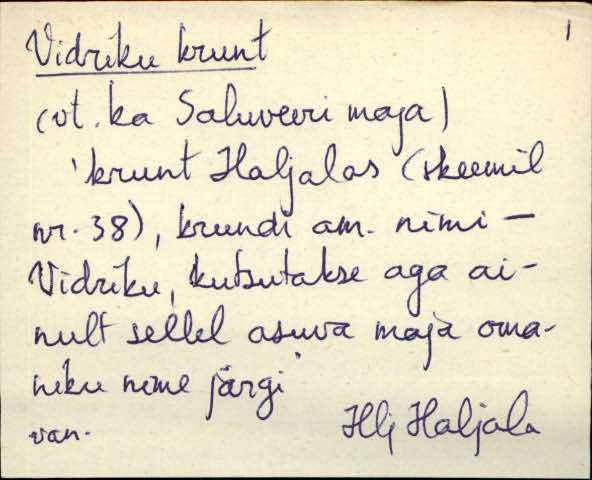 1
Vidriku krunt
(vt. ka Saluveeri maja)
'krunt Haljalas (skeemil
nr. 38), krundi am. nimi –
Vidriku, kutsutakse aga ai-
nult sellel asuva maja oma-
niku nime järgi'
van. Hlj Haljala